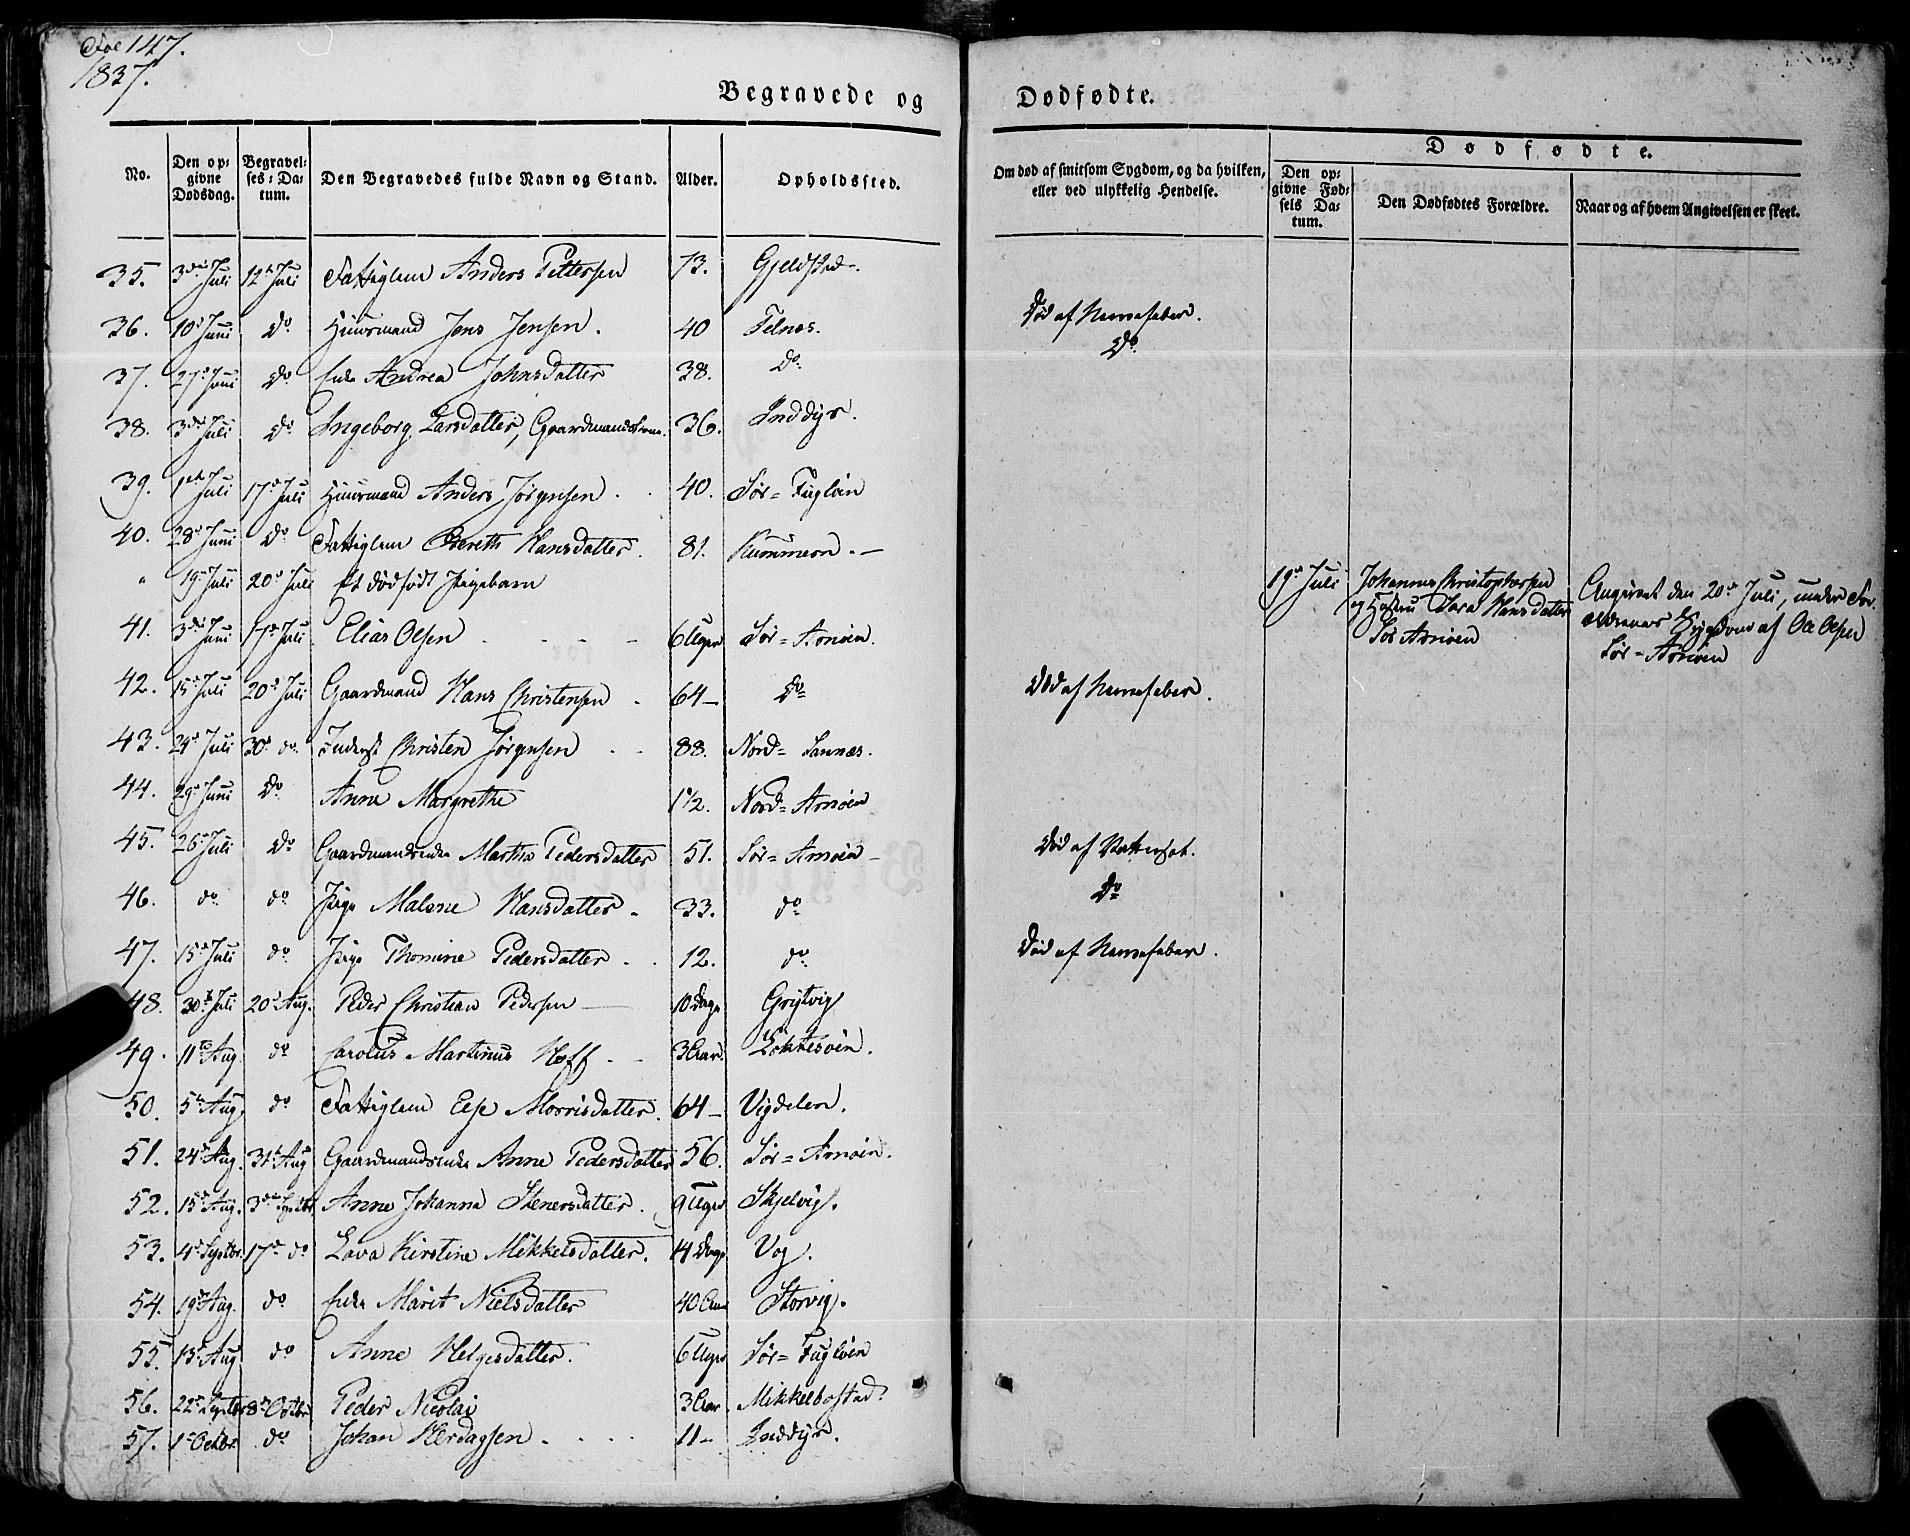 Fol 147.
1837.
Begravede og Dødfødte.
No. Den opgivne Dødsdag. Begravelses-Datum. Den Begravedes fulde Navn og Stand. Alder. Opholdssted. Om død af smitsom Sygdom, og da hvilken, eller ved ulykkelig Hendelse. Dødfødte. Den opgivne Fødsels Datum. Den Dødfødtes Forældre. Naar og af hvem Angivelsen er skeet.
35. 3die Juli 12te Juli Fattiglem Anders Pettersen 73. Gjeldstad.
36. 10d Juni Do Huusmand Jens Jensen. 40 Felnæs. Død af Nervefeber.
37. 27d Juni Do Enke Andrea Johnsdatter 38. Do Do
38. 3die Juli Do Ingeborg Larsdatter, Gaardmandskone. 36. Inddyr.
39. 1ste Juli 17de Juli Huusmand Anders Jørgensen. 40. Sør=Fugløin
40. 28de Juni Do Fattiglem Bereth Hansdatter. 81. Kummern.
" 19de Juli 20de Juli Et dødfødt Pigebarn 19de Juli Johannes Christophersen og Hustru Sara Hansdatter Sør Arnøen Angivet den 20de Juli, under Forældrenes Sygdom af Ole Olsen Sør=Arnøen
41. 3die Juni 17de Juli Elias Olsen 6 Uger Sør=Arnøen.
42. 15de Juli 20de Juli Gaardmand Hans Christensen 64 Do Død af Nervefeber.
43. 24de Juli 30d do. Inderst Christen Jørgensen 88. Nord=Sannæs.
44. 29de Juni Do Anne Margrethe 1 1/2. Nord=Arnøen
45. 26de Juli Do Gaardmandsenke Martha Pedersdatter 51. Sør=Arnøen
46. do do Pige Malene Hansdatter 33. do Do
47. 15de Juli do Pige Thomine Pedersdatter 12. do Død af Nervefeber.
48. 30te Juli 20d Aug. Peder Christian Pedersen 10 Dage Grytvig
49. 11te Aug. do Carolus Martinus Hoff 3 Aar. Løkkesøin.
50. 5te Aug. do Fattiglem Else Morrisdatter. 64 Vigdelen.
51. 24de Aug. 31te Aug Gaardmandsenke Anne Pedersdatter 56. Sør=Arnøin.
52. 15de Aug. 3die Septbr. Anne Johanna Stenersdatter. 9 Uger Skjelvig.
53. 4de Septbr. 17de do Lava Kirstine Mikkelsdatter. 14 Dage Vog.
54. 19de Aug. do Enke Marit Nielsdatter 40 Aar Storvig.
55. 13de Aug do Anne Helgesdatter. 6 Uger Sør=Fugløen
56. 22de Septbr 8de Octbr Peder Nicolai 3 Aar Mikkelbostad.
57. 1ste Octbr. do Johan Hærdagsen 11 Inddyr.